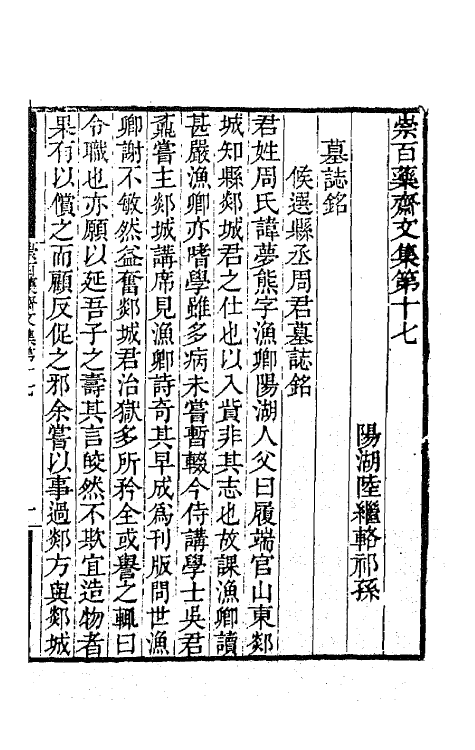 崇百藥齋文集第十七
陽湖陸繼輅祁孫
墓誌銘
候選縣丞周君墓誌銘
君姓周氏諱夢熊字漁卿陽湖人父曰履端官山東郯
城知縣郯城君之仕也以入貲非其志也故課漁卿讀
甚嚴漁卿亦嗜學雖多病未嘗暫輟今侍講學士吳君
鼒嘗主郯城講席見漁卿詩奇其早成爲刊版問世漁
卿謝不敏然益奮郯城君治獄多所矜全或譽之輒曰
令職也亦願以延吾子之壽其言皎然不欺宜造物者
果有以償之而顧反促之邪余嘗以事過郯方與郯城
崇百藥齋文集第十七
一